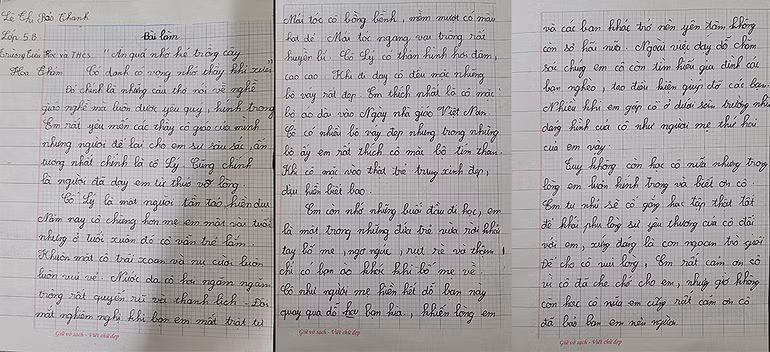 Lê Thị Bảo Thanh
Lớp 5B
Trường Tiểu Học và THCS
Hòa Chám
Bài làm
"Ăn quả nhớ kẻ trồng cây
Có danh có vọng nhớ thầy khi xưa"
Đó chính là những câu thơ nói về nghề
giáo nghề mà luôn được yêu quý, kính trọng
Em rất yêu mến các thầy cô giáo của mình
nhưng người để lại cho em sự sâu sắc, ấn
tượng nhất chính là cô Lý. Cũng chính
là người đã dạy em từ thuở vỡ lòng.
Cô Lý là một người tần tảo, hiền dịu
Năm nay cô chừng hơn mẹ em một vài tuổi
nhưng ở tuổi xuân đó cô vẫn trẻ lắm.
Khuôn mặt cô trái xoan và nụ cười luôn
luôn vui vẻ. Nước da cô hơi ngăm ngăm
trông rất quyến rũ và thanh lịch. Đôi
mắt nghiêm nghị khi bọn em mất trật tự
Giữ vở sạch - Viết chữ đẹp
Mái tóc cô bồng bềnh, mềm mượt có màu
hạt dẻ. Mái tóc ngang vai trông rất
huyền bí. Cô Lý có thân hình hơi đậm,
cao cao. Khi đi dạy cô đều mặc những
bộ váy rất đẹp. Em thích nhất là cô mặc
bộ áo dài vào Ngày nhà giáo Việt Nam
Cô có nhiều bộ váy đẹp nhưng trong những
bộ ấy em rất thích cô mặc bộ tím than.
Khi cô mặc vào thật trẻ trung xinh đẹp,
dịu hiền biết bao.
Em còn nhớ những buổi đầu đi học, em
là một trong những đứa trẻ vừa rời khỏi
tay bố mẹ, ngơ ngác, rụt rè và thậm
chí có bạn òa khóc khi bố mẹ về.
Cô như người mẹ hiền hết dỗ bạn này
quay qua dỗ bạn kia, khiến lòng em
Giữ vở sạch - Viết chữ đẹp
và các bạn khác trở nên yên tâm không
còn sợ hãi nữa. Ngoài việc dạy dỗ chăm
sóc chúng em cô còn tìm hiểu gia đình các
bạn nghèo, tạo điều kiện giúp đỡ các bạn.
Nhiều khi em gặp cô ở dưới sân trường nhìn
dáng hình của cô như người mẹ thứ hai
của em vậy.
Tuy không còn học cô nữa nhưng trong
lòng em luôn kính trọng và biết ơn cô.
Em tự nhủ sẽ cố gắng học tập thật tốt
để khỏi phụ lòng sự yêu thương của cô đối
với em, xứng đáng là con ngoan trò giỏi
để cho cô vui lòng. Em rất cảm ơn cô
vì cô đã che chở cho em, nhưng giờ không
còn học cô nữa em cũng rất cảm ơn cô
đã bảo ban em nên người.
Giữ vở sạch - Viết chữ đẹp